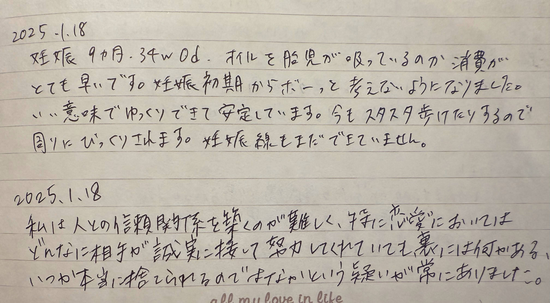 2025.1.18
妊娠 9ヵ月. 34w0d. オイルを胎児が吸っているのか 消費が
とても早いです。妊娠初期からボーっと考えないようになりました。
いい意味でゆっくりできて安定しています。今もスタスタ歩けたりするので
周りにびっくりされます。妊娠線もまだできていません。
2025.1.18
私は人との信頼関係を築くのが難しく、特に恋愛においては
どんなに相手が誠実に接して努力してくれていても、裏には何かがある、
いつか本当に捨てられるのではないかという疑いが常にありました。
all my love in life